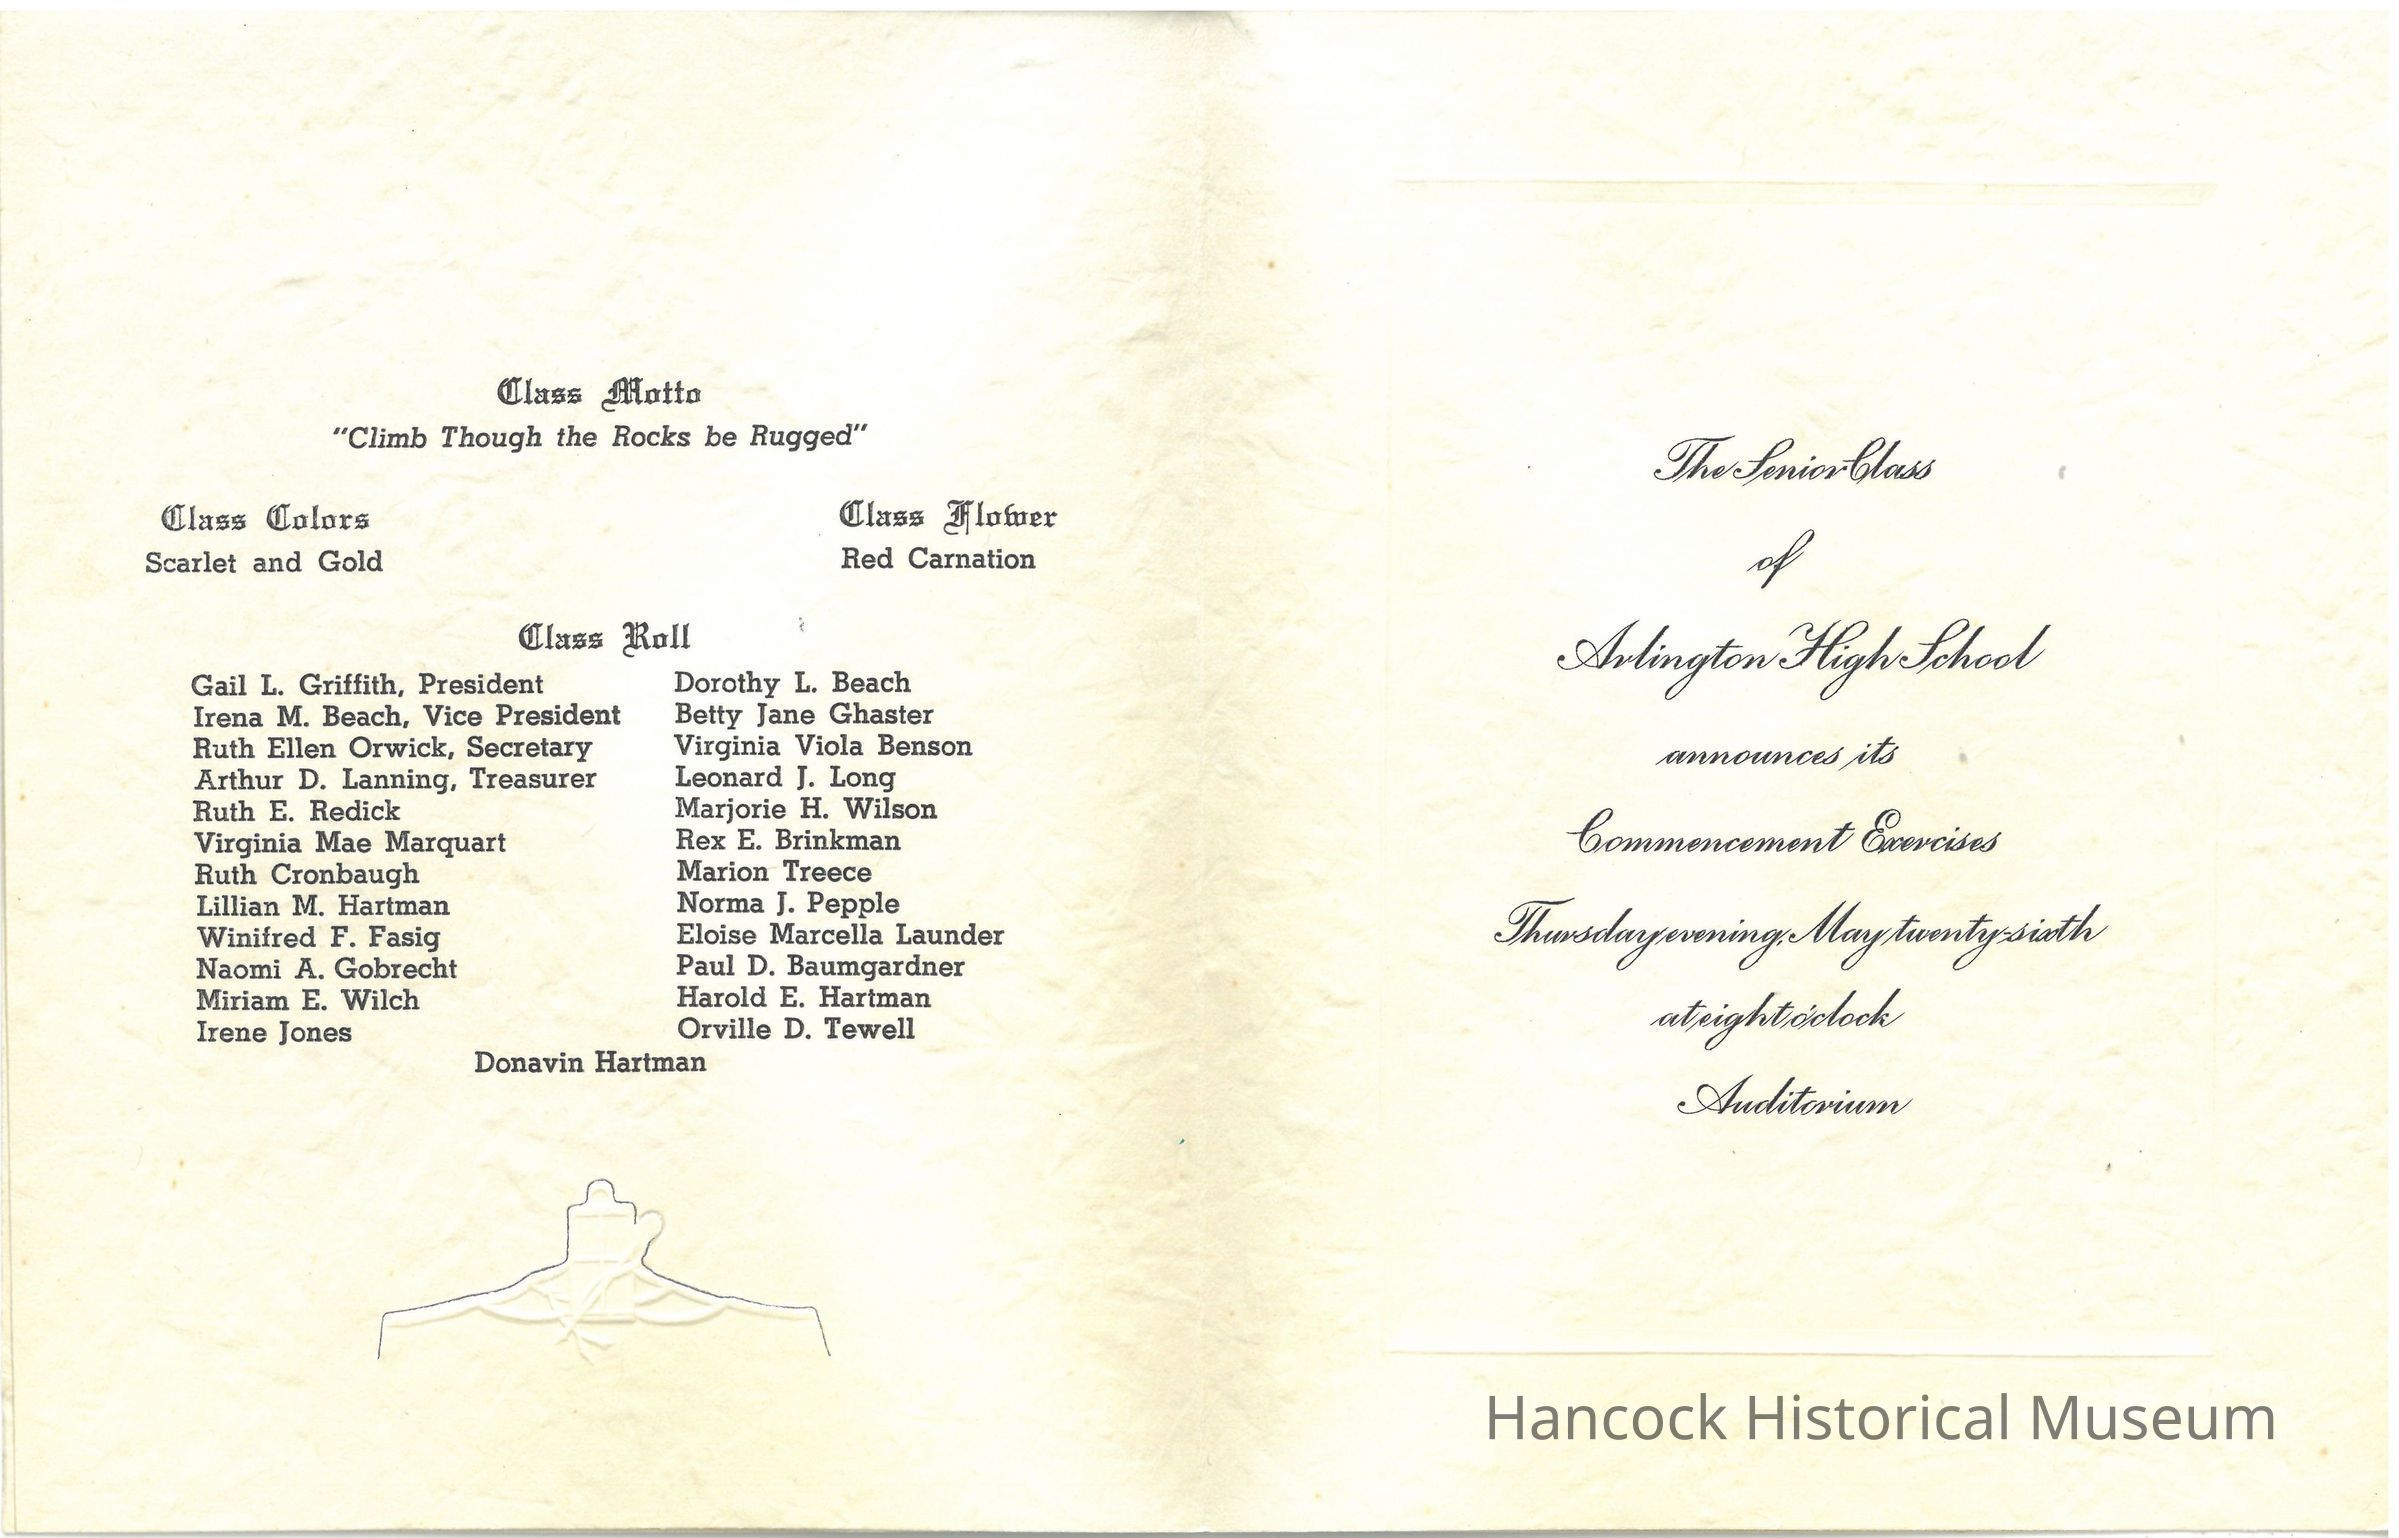 Class Motto
"Climb Though the Rocks be Rugged"
Class Colors
Scarlet and Gold
Class Flower
Red Carnation
Class Roll
Gail L. Griffith, President
Irena M. Beach, Vice President
Ruth Ellen Orwick, Secretary
Arthur D. Lanning, Treasurer
Ruth E. Redick
Virginia Mae Marquart
Ruth Cronbaugh
Lillian M. Hartman
Winifred F. Fasig
Naomi A. Gobrecht
Miriam E. Wilch
Irene Jones
Dorothy L. Beach
Betty Jane Ghaster
Virginia Viola Benson
Leonard J. Long
Marjorie H. Wilson
Rex E. Brinkman
Marion Treece
Norma J. Pepple
Eloise Marcella Launder
Paul D. Baumgardner
Harold E. Hartman
Orville D. Tewell
Donavin Hartman
The Senior Class
of
Arlington High School
announces its
Commencement Exercises
Thursday evening, May twenty-sixth
at eight o'clock
Auditorium
Hancock Historical Museum